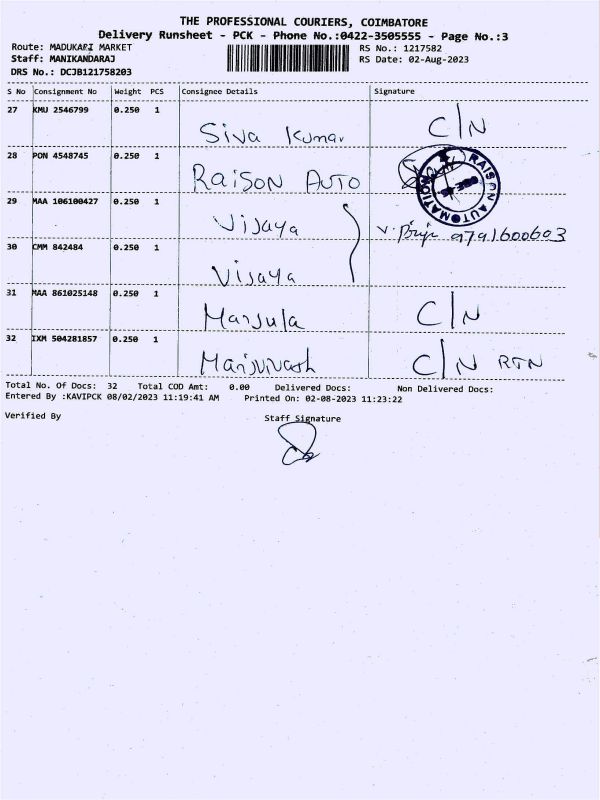 THE PROFESSIONAL COURIERS, COIMBATORE
Delivery Runsheet - PCK - Phone No.:0422-3505555 - Page No.:3
Route: MADUKARI MARKET
Staff: MANIKANDARAJ
DRS No.: DCJB121758203
RS No.: 1217582
RS Date: 02-Aug-2023
S No Consignment No Weight PCS Consignee Details Signature
27 KMU 2546799 0.250 1 Siva Kumar C/N
28 PON 4548745 0.250 1 RAISON AUTO
RAISON AUTOMATION
29 MAA 106100427 0.250 1 Vijaya 9791600603
30 CMM 842484 0.250 1 Vijaya
31 MAA 861025148 0.250 1 Manjula C/N
32 IXM 504281857 0.250 1 C/N RTN
Total No. Of Docs: 32 Total COD Amt: 0.00 Delivered Docs: Non Delivered Docs:
Entered By :KAVIPCK 08/02/2023 11:19:41 AM Printed On: 02-08-2023 11:23:22
Verified By Staff Signature